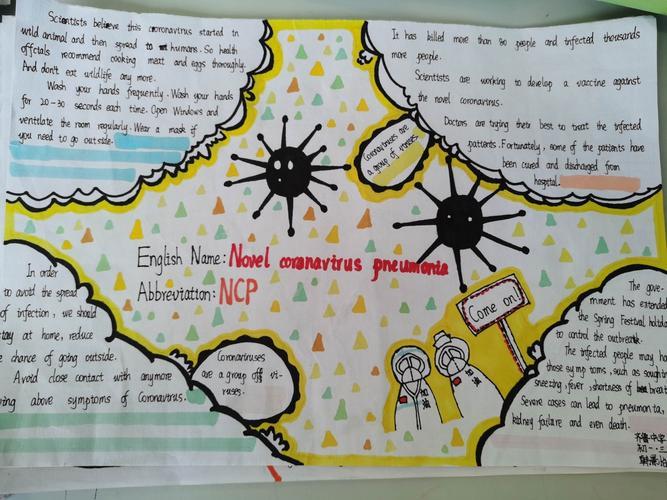 Scientists believe this coronavirus started in
wild animal and then spread to humans. So health
offcials recommend cooking meat and eggs thoroughly.
And don't eat wildlife any more.
Wash your hands frequently. Wash your hands
for 20-30 seconds each time. Open Windows and
ventilate the room regularly. Wear a mask if
you need to go outside.
It has killed more than 80 people and infected thousands
more people.
Scientists are working to develop a vaccine against
the novel coronavirus.
Doctors are trying their best to treat the infected
patients. Fortunately, some of the patients have
been cured and discharged from
hospital.
Coronaviruses are
a group of viruses.
English Name: Novel coronavirus pneumonia
Abbreviation: NCP
Come on!
加油
加油
In order
to avoid the spread
of infection, we should
stay at home, reduce
chance of going outside.
Avoid close contact with anymore
above symptoms of Coronavirus.
Coronaviruses
are a group off vi-
ruses.
The gove-
rnment has extended
the Spring Festival holiday
to control the outbreak.
The infected people may ha
those symptoms, such as
sneezing, fever, shortness of breath
Severe cases can lead to pneumonia,
kidney failure and even death.